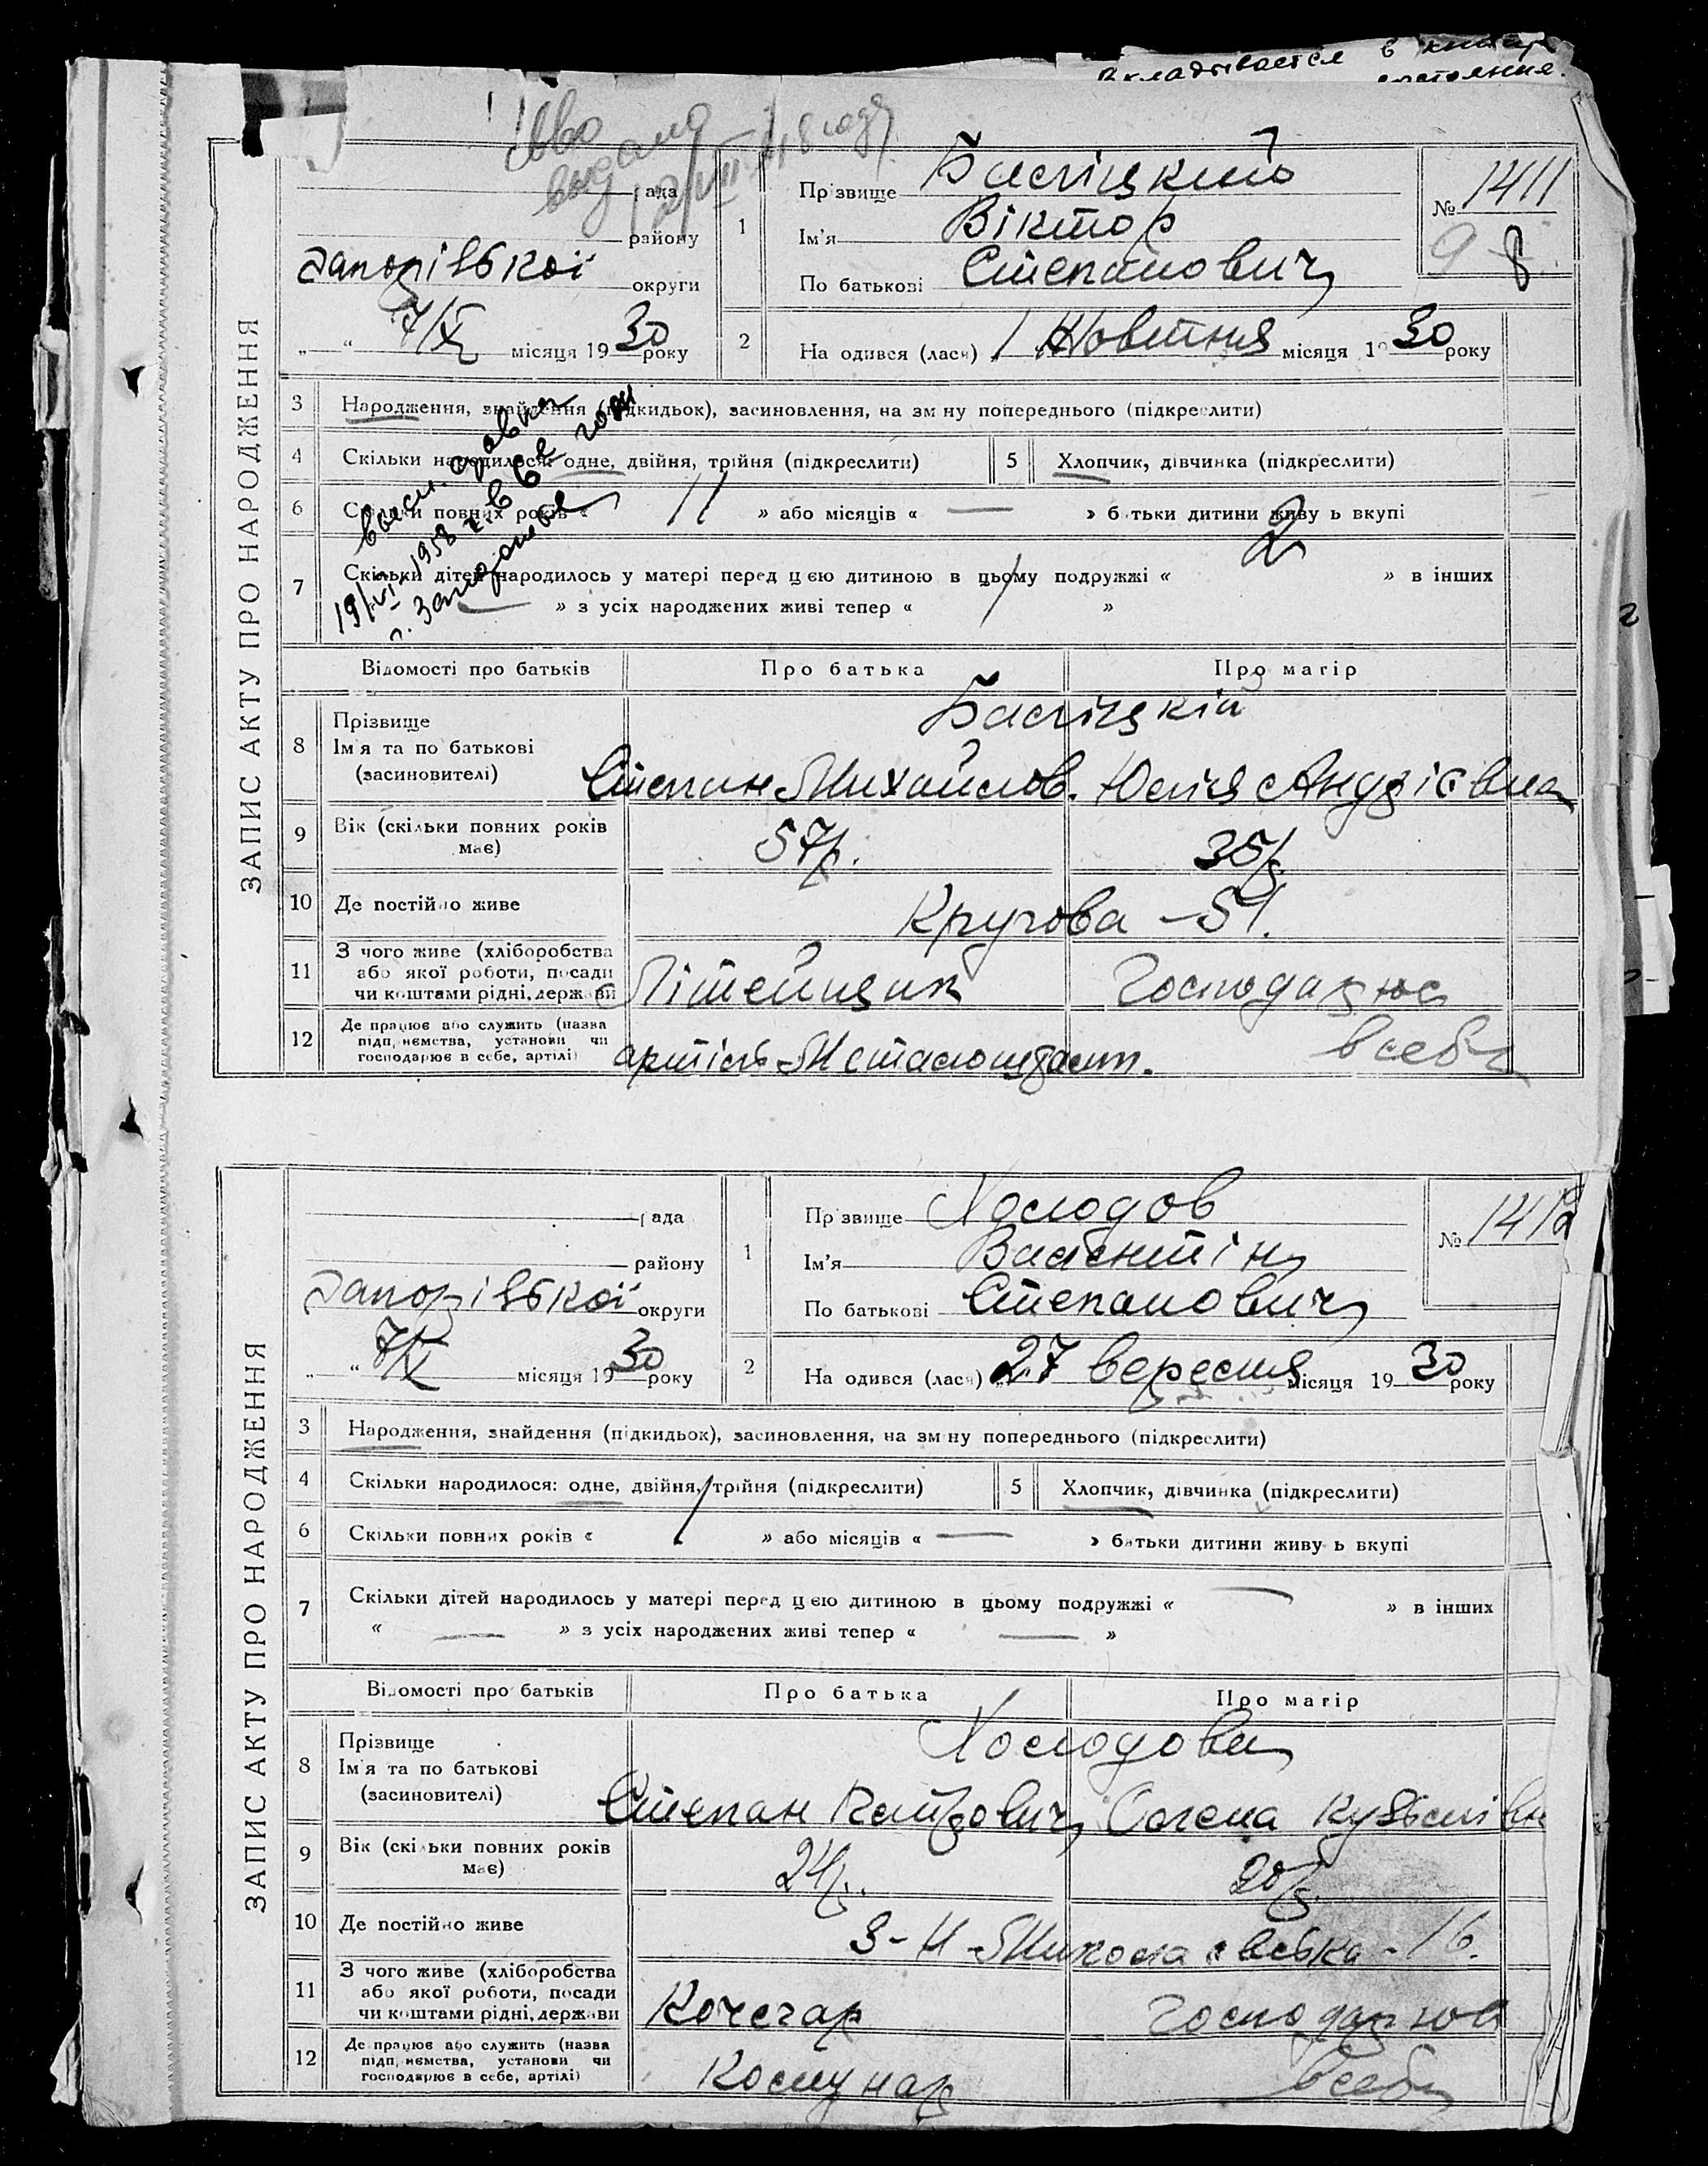 вкладывается в книгу
состояния.
выдано
12/VIII 48 году
ЗАПИС АКТУ ПРО НАРОДЖЕННЯ
рада
району
Запорізької округи
„ “ 7/X місяця 1930 року
1
Прізвище
Ім'я Віктор
По батькові Степанович
№ 1411
2
На одився (лася) 1 Жовтня місяця 1930 року
3 Народження, знайдення (підкидьок), засиновлення, на зм ну попереднього (підкреслити)
4 Скільки народилося: одне, двійня, трійня (підкреслити) 5 Хлопчик, дівчинка (підкреслити)
6 Скільки повних років « 11 » або місяців « — » батьки дитини живу ь вкупі
7 Скільки дітей народилось у матері перед цією дитиною в цьому подружжі « 2 » в інших
— » з усіх народжених живі тепер « / »
19/VI 1958 г.
г. Запорожье
Відомості про батьків Про батька Про матір
8 Прізвище
Ім'я та по батькові
(засиновителі)
Степан Михайлов. Юлія Андріївна
9 Вік (скільки повних років має) 57 р. 35 р.
10 Де постійно живе Кругова - 51.
11 З чого живе (хліборобства або якої роботи, посади чи коштами рідні, держави Літейщик Господарює
12 Де працює або служить (назва підприємства, установи чи господарює в себе, артілі) артіль Металошталт. в себе
ЗАПИС АКТУ ПРО НАРОДЖЕННЯ
рада
району
Запорізької округи
„ “ 7/X місяця 1930 року
1
Прізвище Холодов
Ім'я Валентін
По батькові Степанович
№ 1412
2
На одився (лася) 27 вересня місяця 1930 року
3 Народження, знайдення (підкидьок), засиновлення, на зм ну попереднього (підкреслити)
4 Скільки народилося: одне, двійня, трійня (підкреслити) 5 Хлопчик, дівчинка (підкреслити)
6 Скільки повних років « 1 » або місяців « — » батьки дитини живу ь вкупі
7 Скільки дітей народилось у матері перед цією дитиною в цьому подружжі « — » в інших
« — » з усіх народжених живі тепер « — »
Відомості про батьків Про батька Про матір
8 Прізвище Холодови
Ім'я та по батькові
(засиновителі)
Степан Петрович Олена Кузьмівн
9 Вік (скільки повних років має) 24 р. 20 р.
10 Де постійно живе З-Н-Миколаєвська - 16.
11 З чого живе (хліборобства або якої роботи, посади чи коштами рідні, держави Кочегар Господарює
12 Де працює або служить (назва підприємства, установи чи господарює в себе, артілі) Комунар в себе